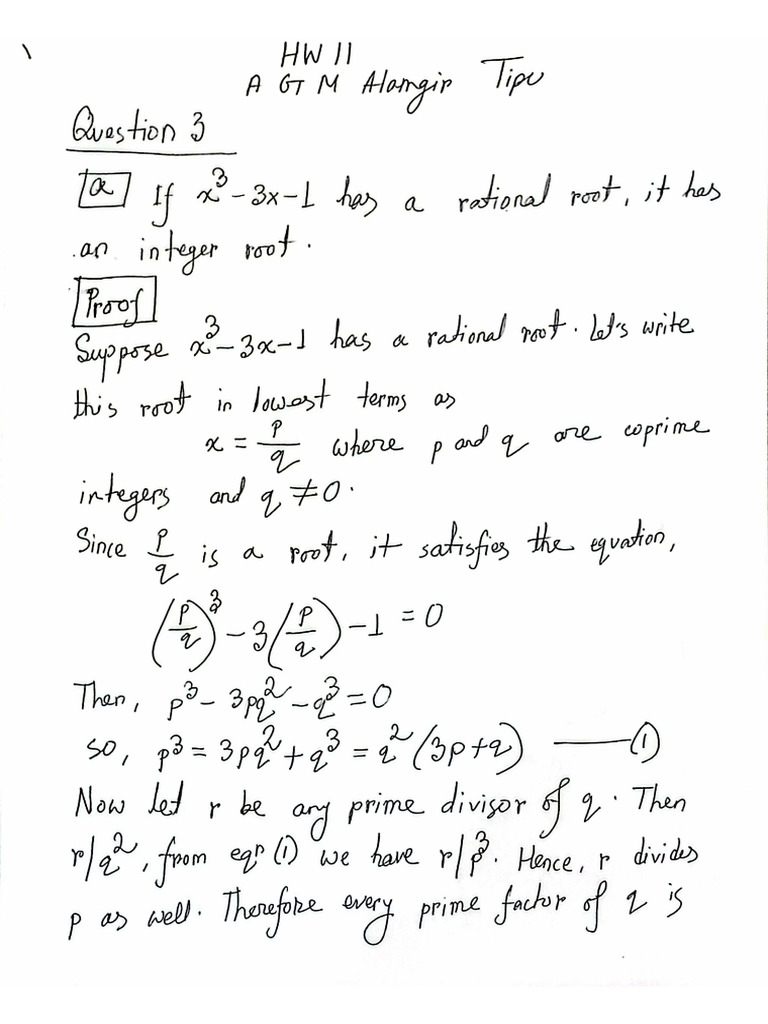 HW 11
A G M Alamgir Tipu
Question 3
a If x³ - 3x - 1 has a rational root, it has
an integer root.
Proof
Suppose x³ - 3x - 1 has a rational root. Let's write
this root in lowest terms as
x = p/q where p and q are coprime
integers and q ≠ 0.
Since p/q is a root, it satisfies the equation,
(p/q)³ - 3(p/q) - 1 = 0
Then, p³ - 3pq² - q³ = 0
so, p³ = 3pq² + q³ = q²(3p + q) —— (1)
Now let r be any prime divisor of q. Then
r/q², from eqn (1) we have r/p³. Hence, r divides
p as well. Therefore every prime factor of q is